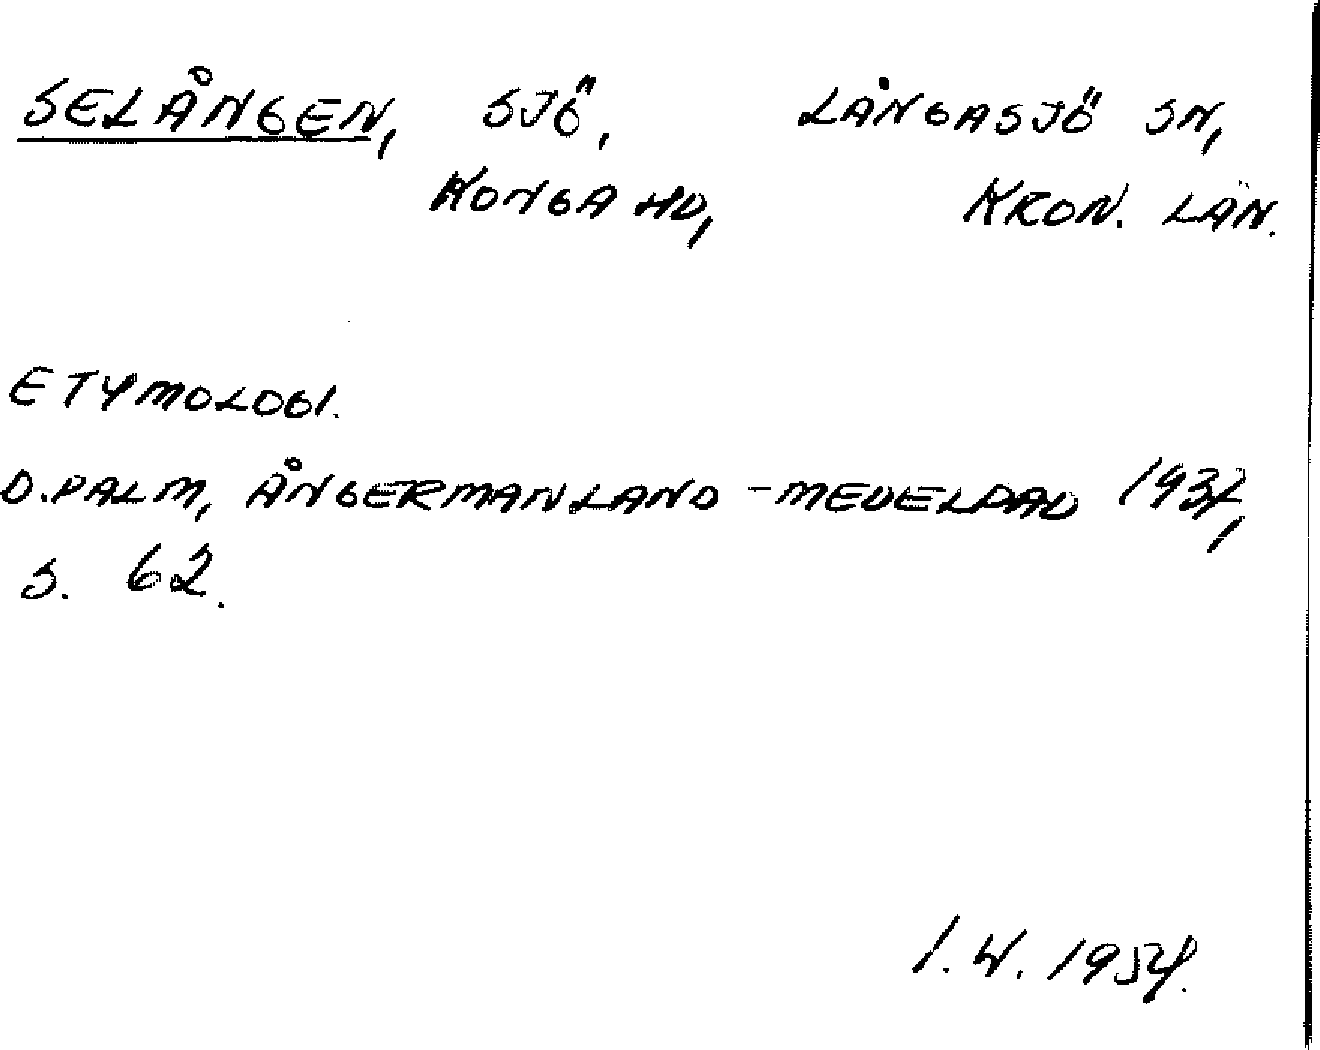 SELÅNGEN, SJÖ, LÅNGASJÖ SN,
KONGA HD, KRON. LÄN.
ETYMOLOGI.
D. PALM, ÅNGERMANLAND - MEDELPAD 1937,
S. 62.
I. W. 1954.